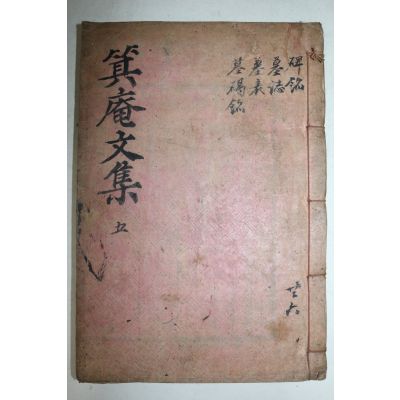 碑銘
墓誌
墓表
墓碣銘
箕庵文集
五
共六